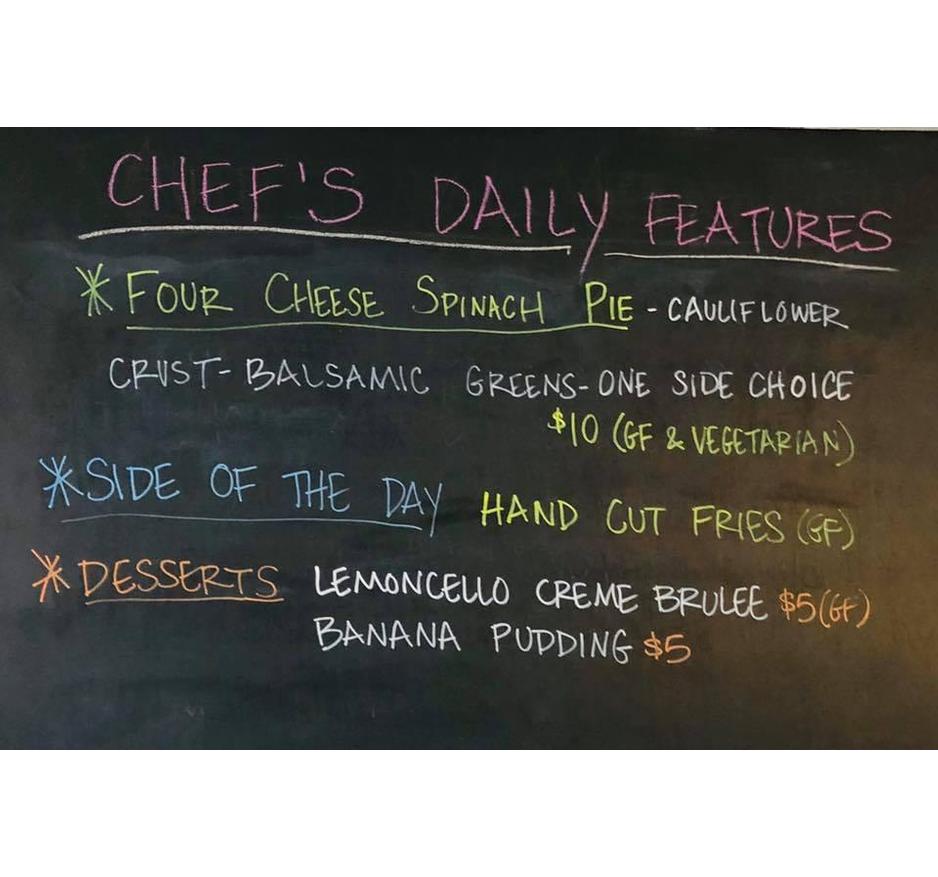 CHEF'S DAILY FEATURES
* FOUR CHEESE SPINACH PIE - CAULIFLOWER
CRUST - BALSAMIC GREENS - ONE SIDE CHOICE
$10 (GF & VEGETARIAN)
* SIDE OF THE DAY HAND CUT FRIES (GF)
* DESSERTS LEMONCELLO CREME BRULEE $5 (GF)
BANANA PUDDING $5